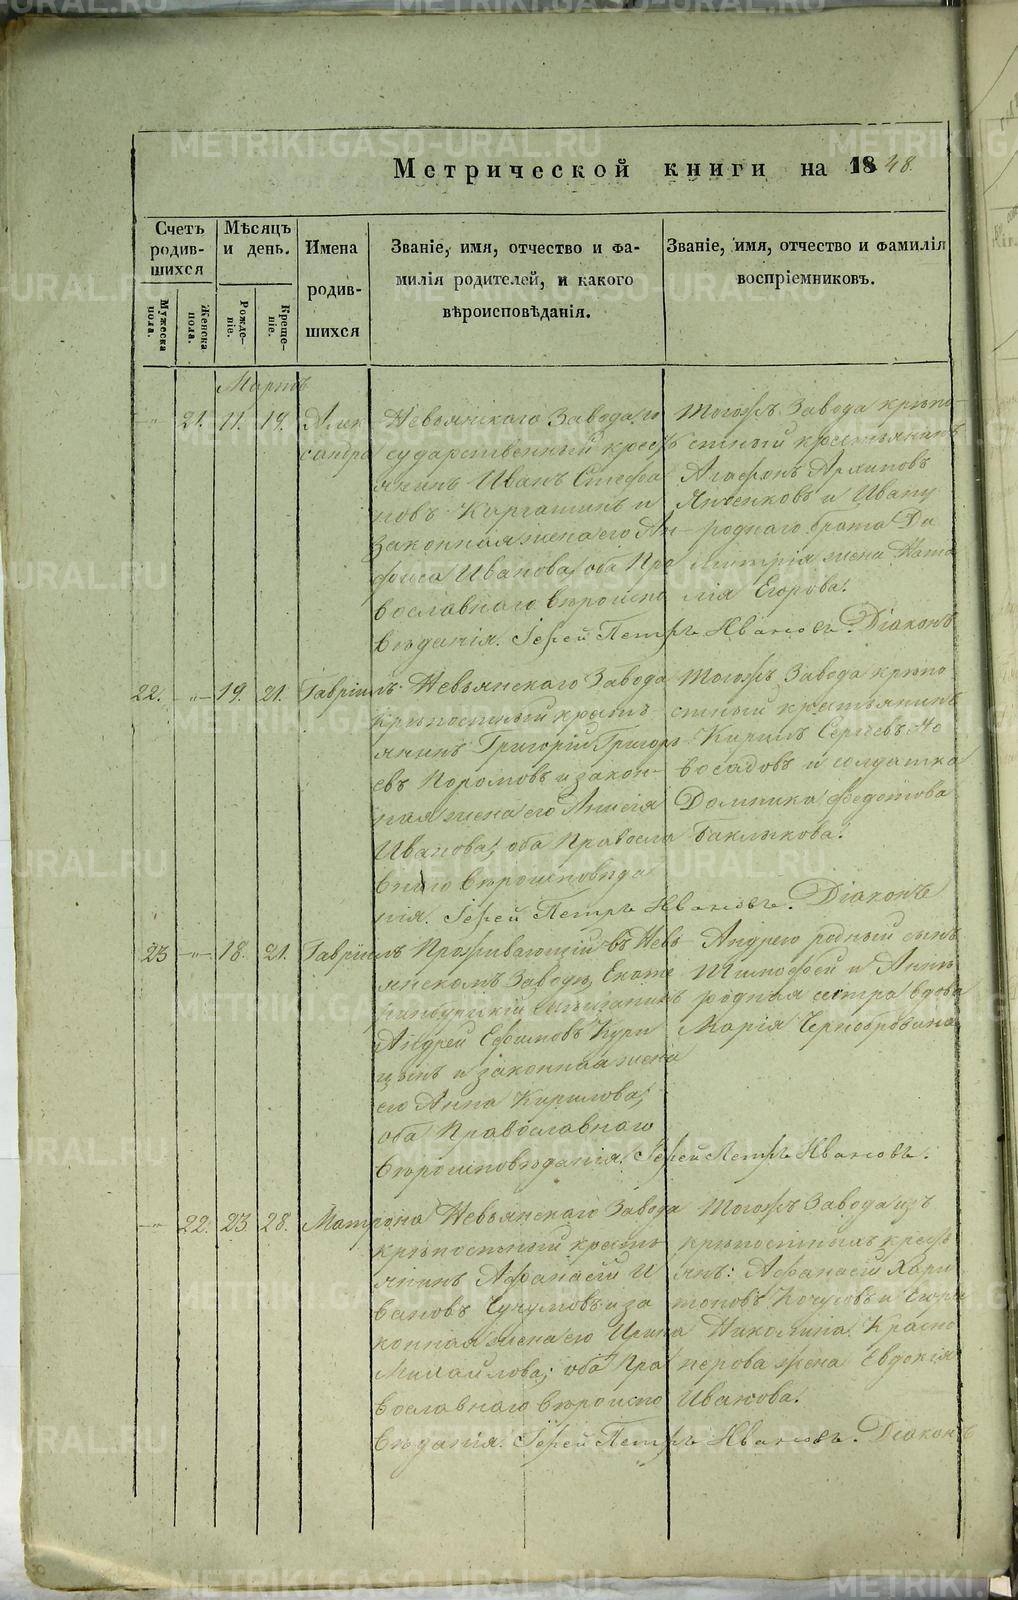 Метрической книги на 1848.
Счетъ родив-шихся
Мѣсяцъ и день.
Имена родив-шихся
Званіе, имя, отчество и фа-
милія родителей, и какого
вѣроисповѣданія.
Званіе, имя, отчество и фамилія
воспріемниковъ.
Мужеска пола.
Женска пола.
Рожде-ніе.
Креще-ніе.
Мартъ
-"- 21. 11. 19. Алек
сандра
Невьянскаго Завода го
сударственный кресть
янинъ Иванъ Стефа
новъ и
законная жена его Ан-
фиса Иванова, оба Пра
вославнаго вѣроиспо
вѣданія. Іерей Петръ Ивановъ. Діаконъ
Тогожъ Завода крѣпо-
стный крестьянинъ
Агафонъ Архиповъ
и Ивану
роднаго брата Ди
митрія жена Ната
лія Егорова.
22. -"- 19. 21. Гавріилъ
Невьянскаго Завода
крѣпостный кресть
янинъ Григорій Григорь
евъ Поромовъ и закон-
ная жена его Анисія
Иванова; оба Правосла
внаго вѣроисповѣда
нія. Іерей Петръ Ивановъ. Діаконъ
Тогожъ Завода крѣпо
стный крестьянинъ
Кирилъ Сергѣевъ Но
восадовъ и солдатка
Домника Федотова
Баклыкова.
23 -"- 18. 21. Гавріилъ
Проживающій въ Невь
янскомъ Заводѣ, Екате
ринбургскій
Андрей Ефимовъ Кури
цынъ и законная жена
его Анна Кирилова;
оба Православнаго
вѣроисповѣданія. Іерей Петръ Ивановъ.
Андрею родный сынъ
Тимофей и Аннѣ
родная сестра вдова
Марія Чернобровина
-"- 22. 23. 28. Матрона
Невьянскаго Завода
крѣпостный кресть
янинъ Афанасій И
вановъ Чучумовъ и за
конная жена его Ирина
Михайлова; оба Пра
вославнаго вѣроиспо
вѣданія. Іерей Петръ Ивановъ. Діаконъ
Тогожъ Завода изъ
крѣпостныхъ кресть
янъ: Афанасій Хари
тоновъ и Егора
Николина Красно
перова жена Евдокія
Иванова.
METRIKI.GASO-URAL.RU